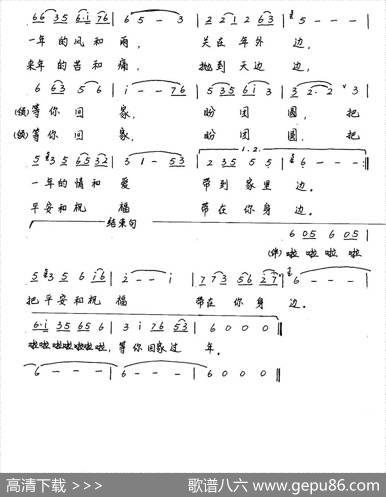 6 6 6 3 5 6·i 7 6 | 6 5 - 3 | 2 2 1 2 6 3 | 5 - - - |
一年的风和雨, 关在年外边,
来年的苦和痛, 抛到天边边,
6 6 3 5 6 | i - - 7 6 | 5 3 5 6 i 3 | 3 2· 2 ˅ 3 |
(领)等你回家, 盼团圆, 把
(领)等你回家, 盼团圆, 把
5 3 5 6 5 3 2 | 3 1 - 5 3 | 2 3 5 5 5 | 6 - - - :|
1. 2.
一年的情和爱 带到家里边。
平安和祝福 带在你身边。
结束句
6 0 5 6 0 5 |
(伴)啦啦啦啦
5 3 5 6 i 6 | 2 - - i | 7 7 3 5 6 2 7 | 6 - - - |
把平安和祝福 带在你身边。
6·i 3 5 6 5 6 | 3 i 7 6 5 3 | 6 0 0 0 ‖
啦啦啦啦啦啦啦, 等你回家过年。
6 - - - | 6 - - - | 6 0 0 0 ‖
高清下载 >>> 歌谱八六 www.gepu86.com